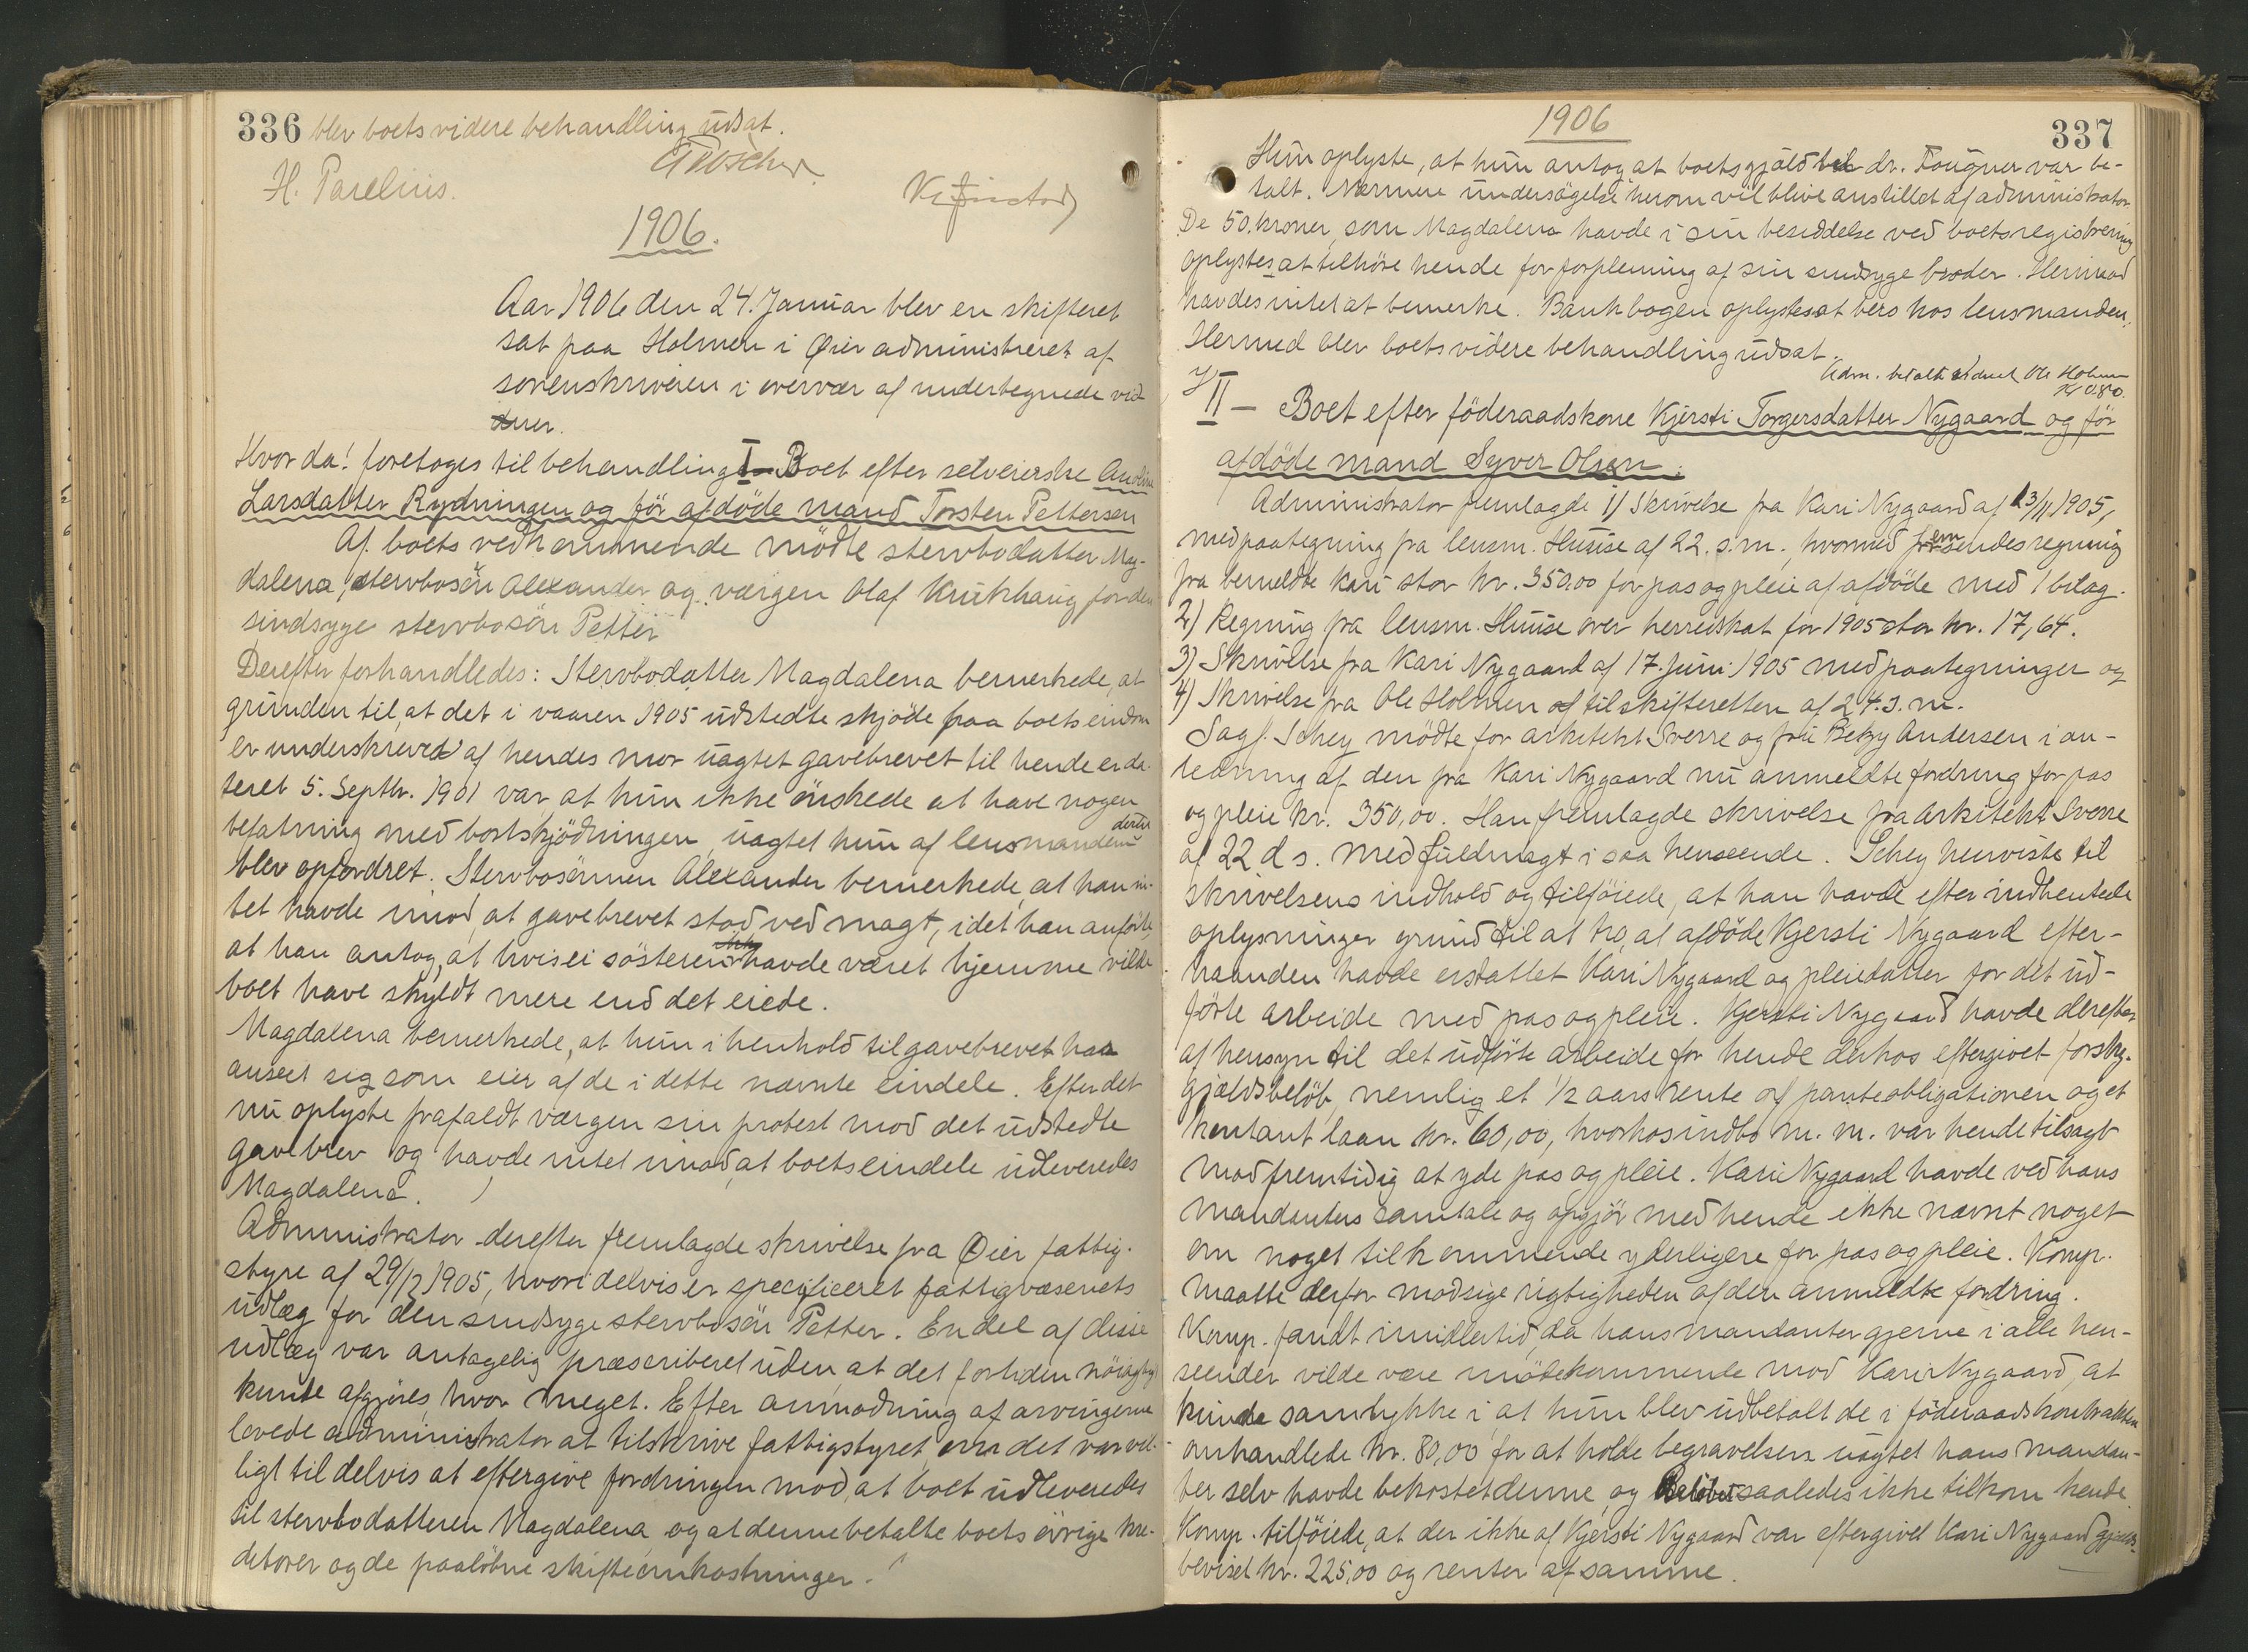 336 blev boets videre behandling udsat.
H. Parelius.
1906.
Aar 1906 den 24. Januar blev en skifteret
sat paa Holmen i Øier administreret af
sorenskriveren i overvær af undertegnede vid-
duer.
Hvor da! foretoges til behandling I Boet efter selveierske
Larsdatter Rydningen og för afdöde mand Torsten Pettersen
Af boets vedkommende mödte stervbodatter Mag-
dalena, stervbosön Alexander og værgen Olaf Krukhaug for den
sindsyge stervbosön Petter
Derefter forhandledes: Stervbodatter Magdalena bemerkede, at
grunden til, at det i vaaren 1905 udstedte skjöde paa boets eindom
er underskrevet af hendes mor uagtet gavebrevet til hende er da-
teret 5. Septbr. 1901 var at hun ikke önskede at have nogen
befatning med bortskjödningen uagtet hun af lensmanden dertil
blev opfordret. Stervbosönnen Alexander bemerkede, at han in-
tet havde imod, at gavebrevet stod ved magt, idet han anförte,
at han antog, at hvis ei sösteren havde været hjemme vilde
boet have skyldt mere end det eiede.
Magdalena bemerkede, at hun i henhold til gavebrevet har
anseet sig som eier af de i dette nævnte eindele. Efter det
nu oplyste frafaldt værgen sin protest mod det udstedte
gavebrev og havde intet imod, at boets eindele udleveredes
Magdalena.
Administrator derefter fremlagde skrivelse fra Øier fattig-
styre af 29/12 1905, hvori delvis er specificeret fattigvæsenets
udlæg for den sindsyge stervbosön Petter. En del af disse
udlæg var antagelig præscriberet uden, at det for tiden nöiagtig
kunde afgjöres, hvor meget. Efter anmodning af arvingerne
lovede administrator at tilskrive fattigstyret, om det var vil-
ligt til delvis at eftergive fordringen mod, at boet udleveredes
til stervbodatteren Magdalena og at denne betalte boets övrige kre-
ditorer og de paalöbne skifteomkostninger.
1906
337
Hun oplyste, at hun antog at boets gjæld til dr. Fougner var be-
talt. Nærmere undersögelse herom vil blive anstillet af administrator
De 50 kroner, som Magdalena havde i sin besiddelse ved boets registrering
oplystes at tilhöre hende for forpleining af sin sindsyge broder. Herimod
havdes intet at bemerke. Bankbogen oplystes at bero hos lensmanden.
Hermed blev boets videre behandling udsat.
Adm. betalt Ole Holmen
Kr 0.80.
II – Boet efter föderaadskone Kjersti Torgersdatter Nygaard og för
afdöde mand Syver Olsen.
Administrator fremlagde 1) Skrivelse fra Kari Nygaard af 13/11 1905,
med paategning fra lensm. Huuse af 22. s.m., hvormed fremsendes regning
fra bemeldte Kari stor kr. 350,00 for pas og pleie af afdöde med 1 bilag.
2) Regning fra lensm. Huuse over herredskat for 1905 stor kr. 17,64.
3) Skrivelse fra Kari Nygaard af 17. Juni 1905 med paategninger og
4) Skrivelse fra Ole Holmen af til skifteretten af 24. s. m.
Sagf. Schey mödte for arkitekt Sverre og fru Betzy Andersen i an-
ledning af den fra Kari Nygaard nu anmeldte fordring for pas
og pleie kr. 350,00. Han fremlagde skrivelse fra arkitekt Sverre
af 22 d s. med fuldmagt i saa henseende. Schey henviste til
skrivelsens indhold og tilföiede, at han havde efter indhentede
oplysninger grund til at tro, at afdöde Kjersti Nygaard efter-
haanden havde erstattet Kari Nygaard og pleiedatter for det ud-
förte arbeide med pas og pleie. Kjersti Nygaard havde derefter
af hensyn til det udförte arbeide for hende derhos eftergivet forskj.
gjældsbelöb, nemlig et 1/2 aars rente af panteobligationen og et
kontant laan kr. 60,00, hvorhos indbo m. m. var hende tilsagt
mod fremtidig at yde pas og pleie. Kari Nygaard havde ved hans
mandanters samtale og opgjör med hende ikke nævnt noget
om noget tilkommende yderligere for pas og pleie. Komp.
maatte derfor modsige rigtigheden af den anmeldte fordring.
Komp. fandt imidlertid, da hans mandanter gjerne i alle hen-
seender vilde være imödekommende mod Kari Nygaard, at
kunde samtykke i at hun blev udbetalt de i föderaadskontrakten
omhandlede kr. 80,00 for at holde begravelsen uagtet hans mandan-
ter selv havde bekostet denne og Belöbet saaledes ikke tilkom hende.
Komp. tilföiede, at der ikke af Kjersti Nygaard var eftergivet Kari Nygaard gjælds-
beviset kr. 225,00 og renter af samme.